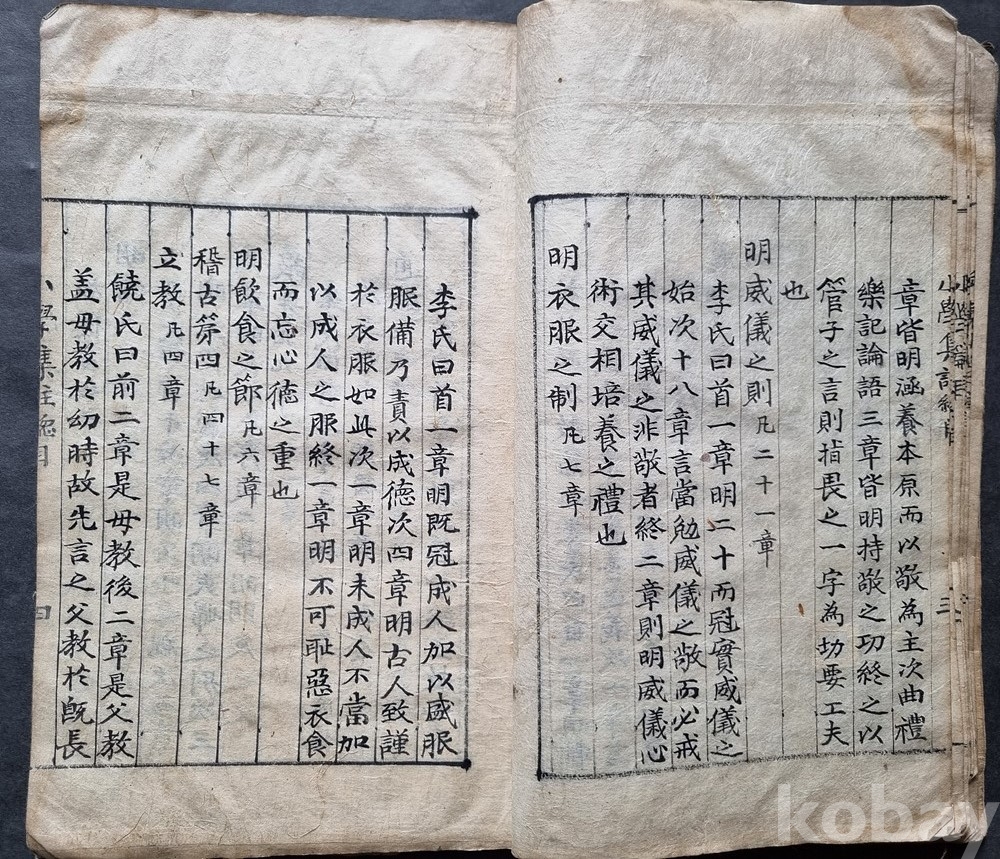 章皆明涵養本原而以敬為主次曲禮
樂記論語三章皆明持敬之功終之以
管子之言則指畏之一字為切要工夫
也
明威儀之則 凡二十一章
李氏曰首一章明二十而冠實威儀之
始次十八章言當勉威儀之敬而必戒
其威儀之非敬者終二章則明威儀心
術交相培養之禮也
明衣服之制 凡七章
李氏曰首一章明既冠成人加以盛服
服備乃責以成德次四章明古人致謹
於衣服如此次一章明未成人不當加
以成人之服終一章明不可恥惡衣食
而忘心德之重也
明飲食之節 凡六章
稽古第四 凡四十七章
立教 凡四章
饒氏曰前二章是母教後二章是父教
盖母教於幼時故先言之父教於既長
小學集註總目
四
kobay